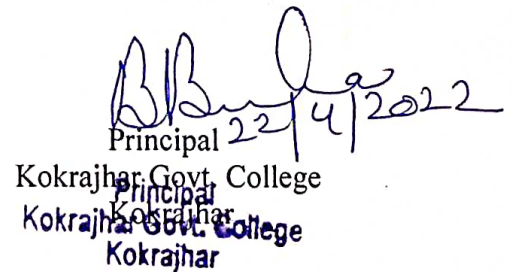 22/4/2022
Principal
Kokrajhar Govt. College
Kokrajhar
Principal
Kokrajhar Govt. College
Kokrajhar